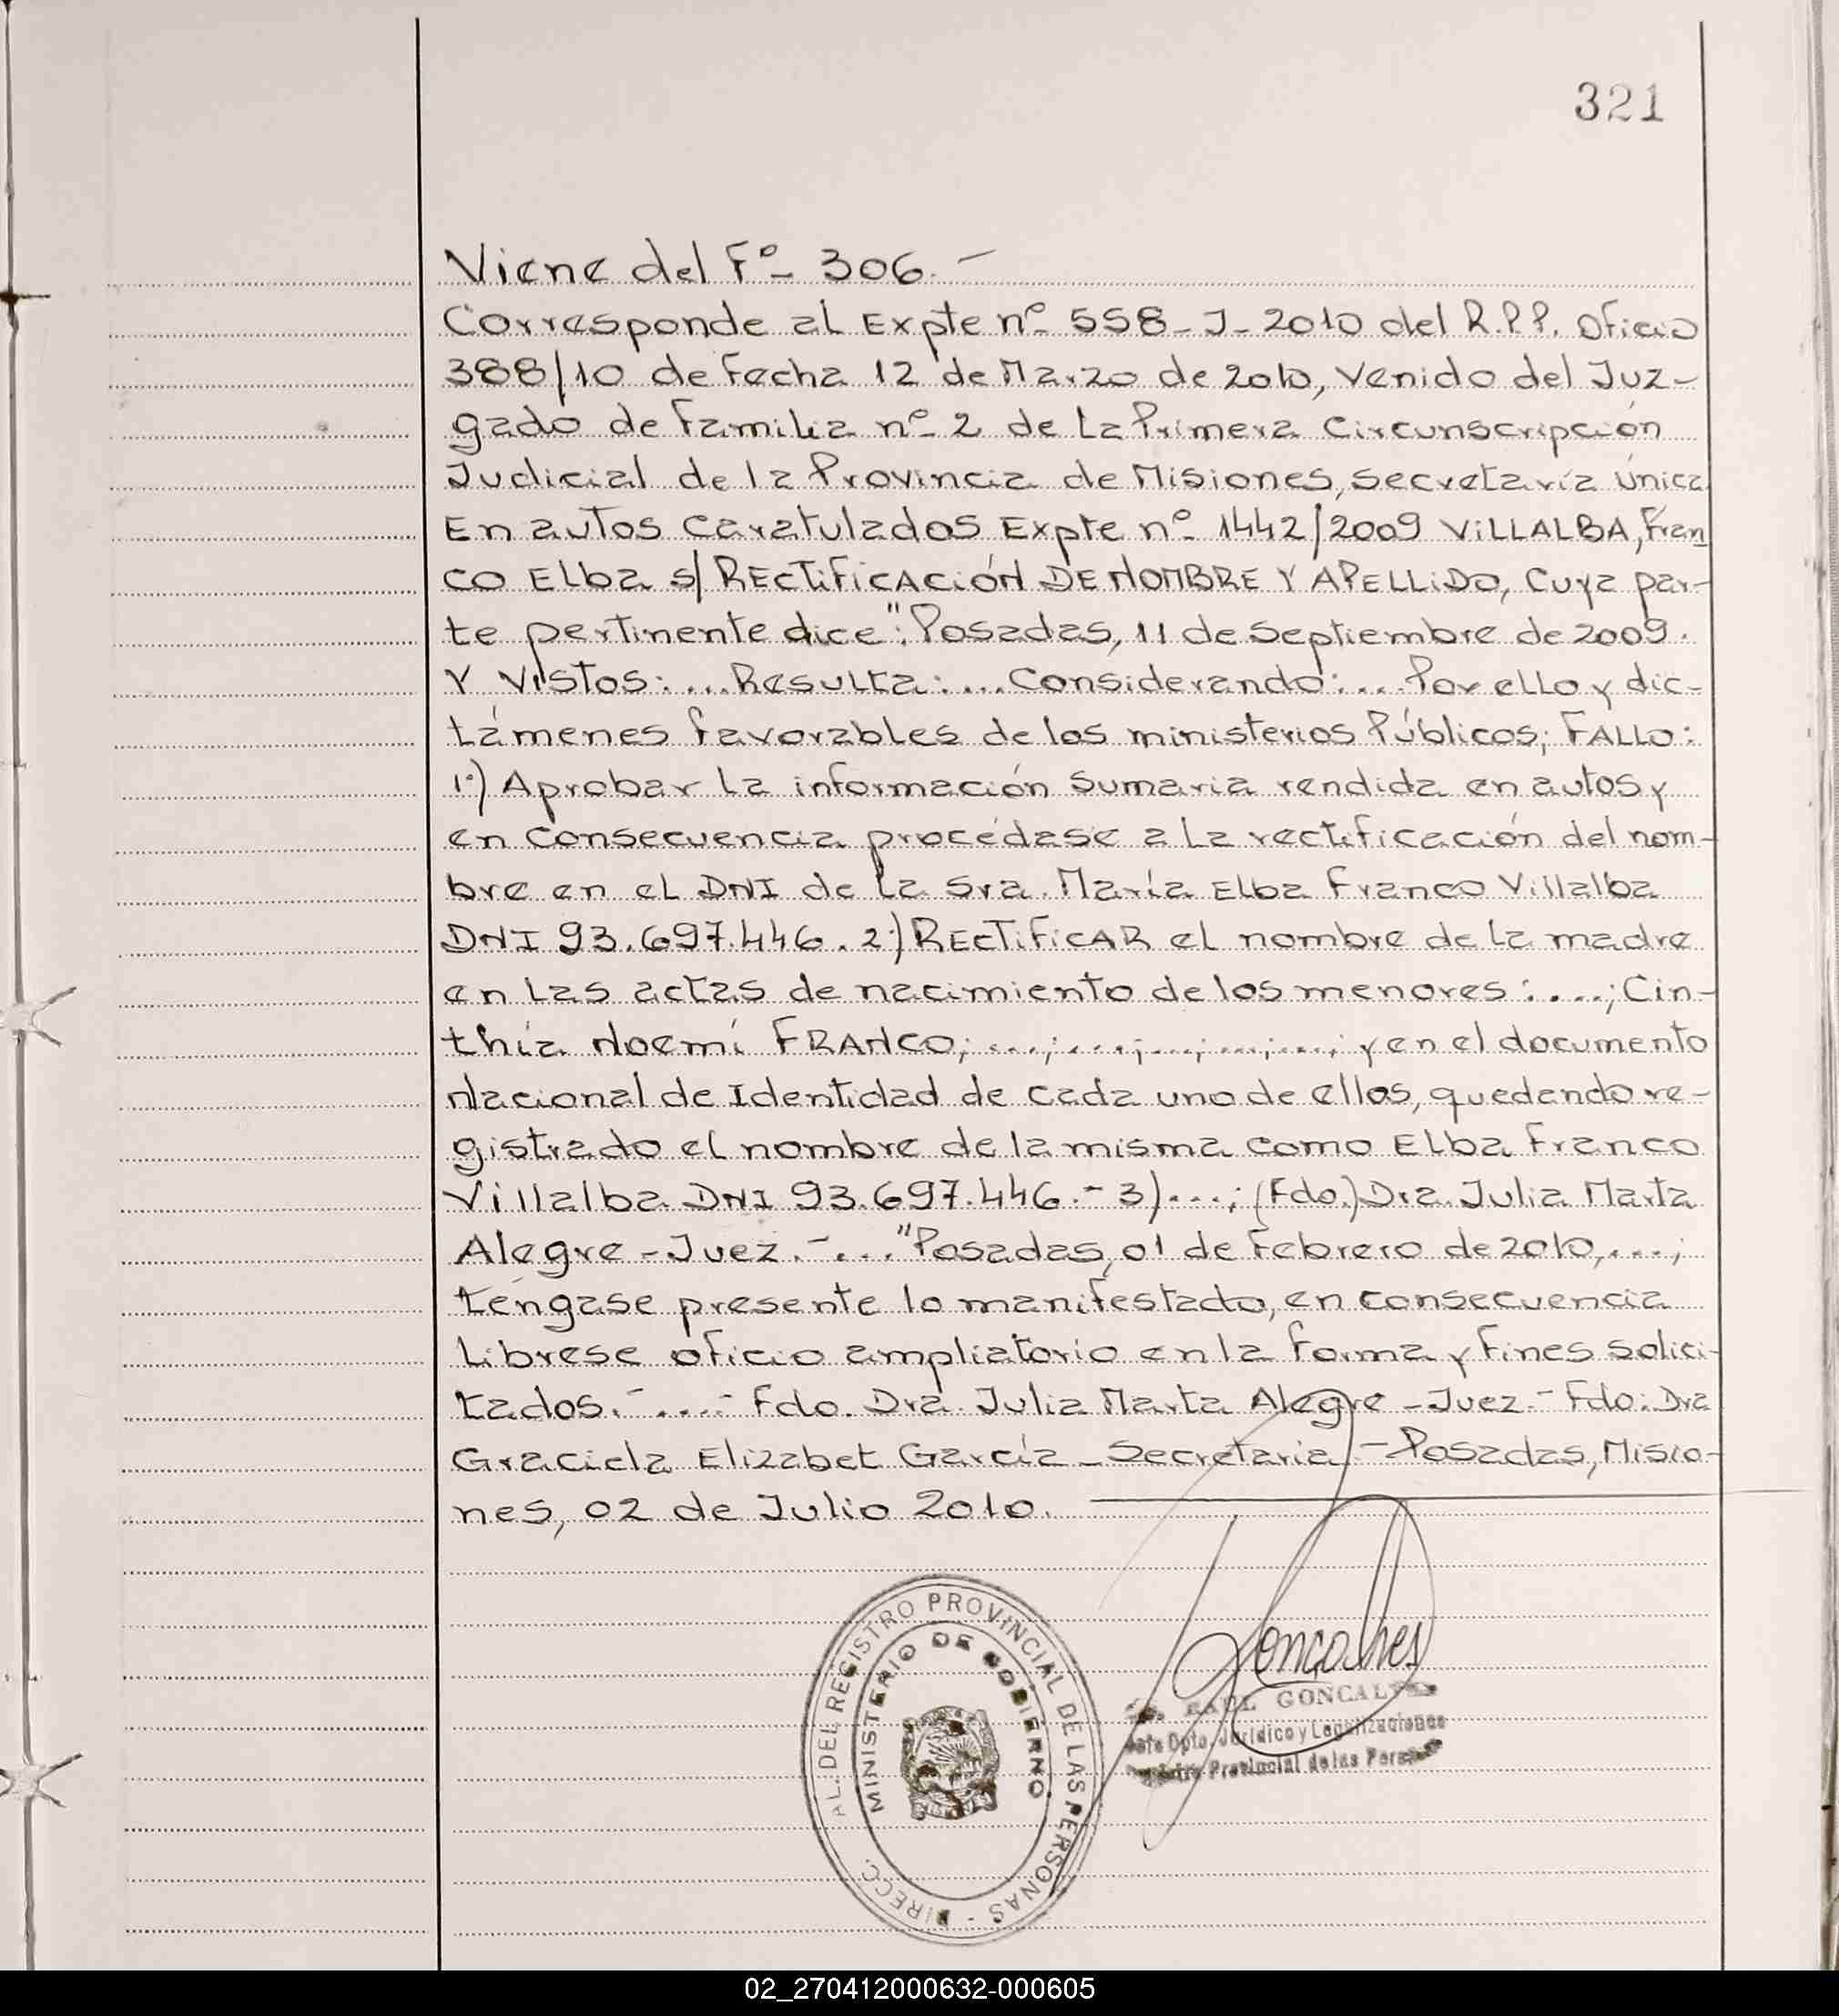 321
Viene del Fº 306.-
Corresponde al Expte nº 558-J-2010 del R.P.P. Oficio
388/10 de Fecha 12 de Marzo de 2010, Venido del Juz-
gado de Familia nº 2 de La Primera Circunscripción
Judicial de la Provincia de Misiones, Secretaría Única
En autos Caratulados Expte nº 1442/2009 VILLALBA, Fran
co Elba s/ RECTIFICACIÓN DE NOMBRE Y APELLIDO, Cuya par-
te pertinente dice": Posadas, 11 de Septiembre de 2009.
Y Vistos:...Resulta:...Considerando:...Por ello y dic-
támenes favorables de los ministerios Públicos; FALLO:
1º) Aprobar la información Sumaria rendida en autos y
en consecuencia procédase a la rectificación del nom-
bre en el DNI de la Sra. María Elba Franco Villalba
DNI 93.697.446. 2º) RECTIFICAR el nombre de la madre
en las actas de nacimiento de los menores:....; Cin-
thia Noemí FRANCO; ...;....;...;...;...; y en el documento
Nacional de Identidad de cada uno de ellos, quedando re-
gistrado el nombre de la misma como Elba Franco
Villalba DNI 93.697.446.- 3)...; (Fdo.) Dra. Julia Marta
Alegre - Juez.-... "Posadas, 01 de Febrero de 2010,....;
téngase presente lo manifestado, en consecuencia
Líbrese oficio ampliatorio en la forma y Fines solici-
tados.- ....- Fdo. Dra. Julia Marta Alegre - Juez.- Fdo: Dra
Graciela Elizabet García - Secretaria - Posadas, Misio-
nes, 02 de Julio 2010.
DIRECC. AL. DEL REGISTRO PROVINCIAL DE LAS PERSONAS -
MINISTERIO DE GOBIERNO
Goncalves
RAUL GONCALVES
Jefe Dpto. Jurídico y Legalizaciones
Provincial de las Personas
02_270412000632-000605